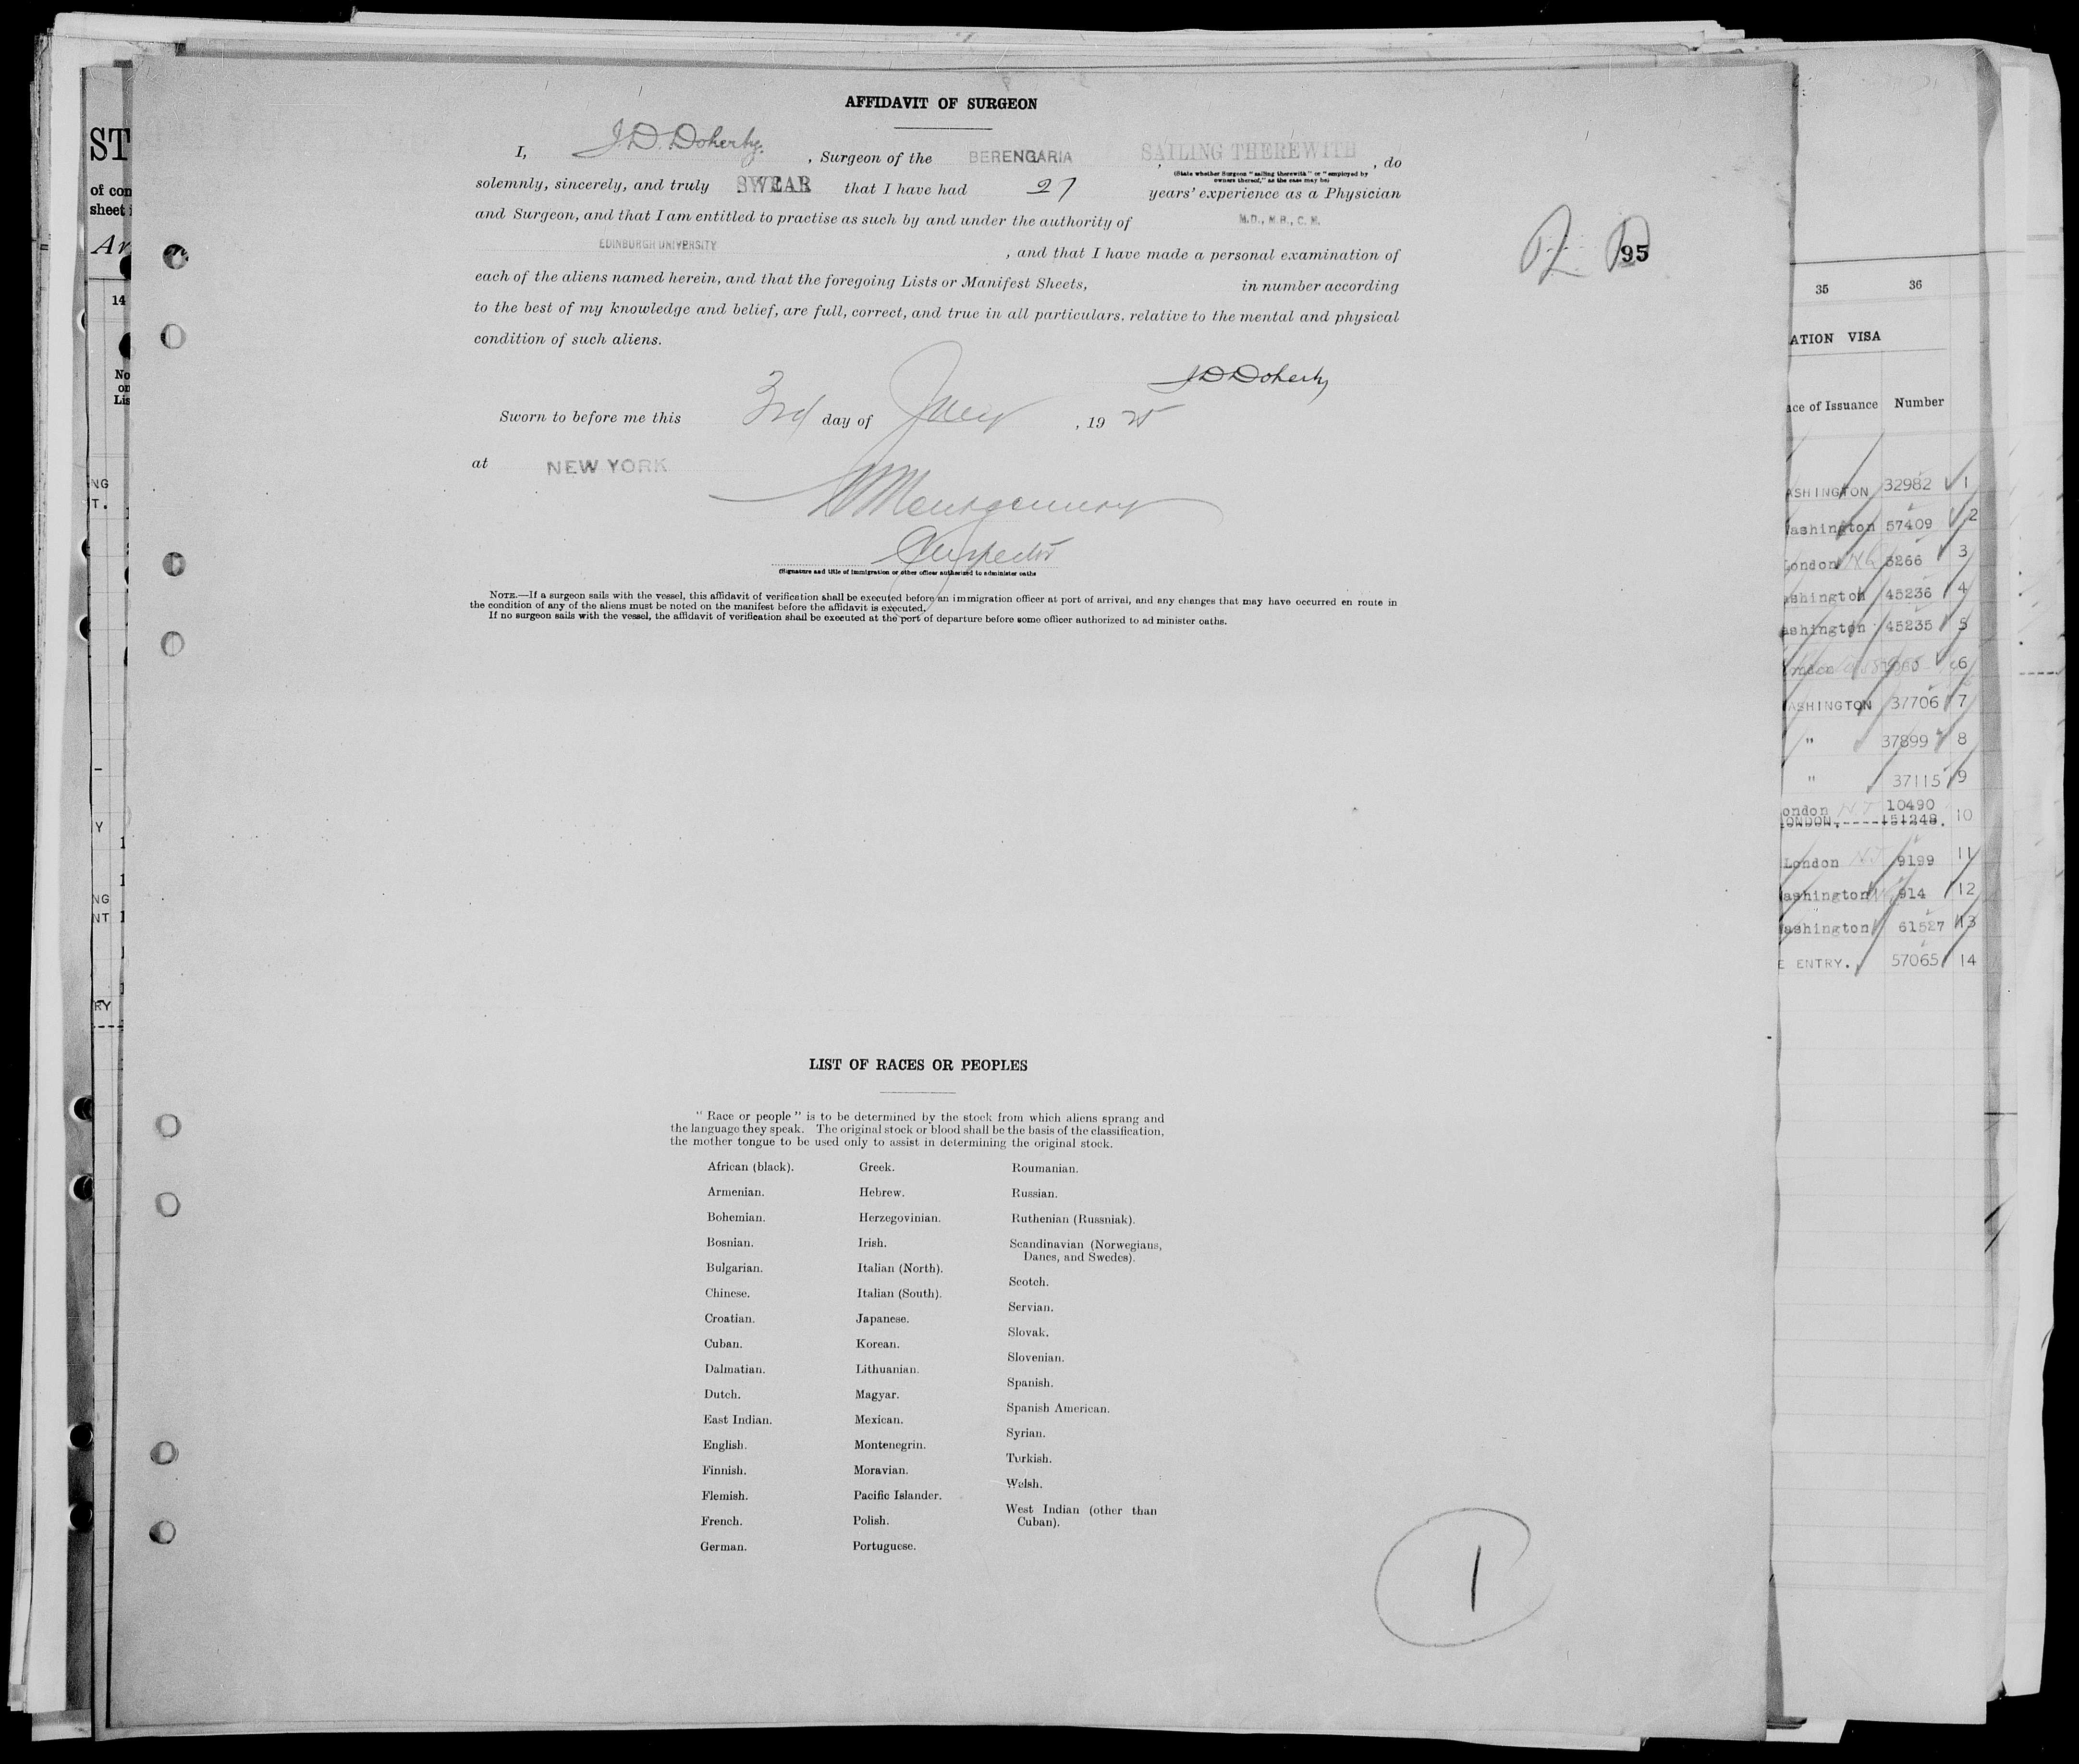 AFFIDAVIT OF SURGEON
I, J. D. Doherty. , Surgeon of the BERENGARIA , SAILING THEREWITH , do
(State whether Surgeon "sailing therewith" or "employed by
owners thereof," as the case may be)
solemnly, sincerely, and truly SWEAR that I have had 27 years' experience as a Physician
and Surgeon, and that I am entitled to practise as such by and under the authority of M.D., M.B., C.M.
EDINBURGH UNIVERSITY , and that I have made a personal examination of
each of the aliens named herein, and that the foregoing Lists or Manifest Sheets, in number according
to the best of my knowledge and belief, are full, correct, and true in all particulars, relative to the mental and physical
condition of such aliens.
95
J D Doherty
Sworn to before me this 3rd day of , 19 25
at NEW YORK
Montgomery
Inspector
(Signature and title of immigration or other officer authorized to administer oaths
NOTE.—If a surgeon sails with the vessel, this affidavit of verification shall be executed before an immigration officer at port of arrival, and any changes that may have occurred en route in
the condition of any of the aliens must be noted on the manifest before the affidavit is executed.
If no surgeon sails with the vessel, the affidavit of verification shall be executed at the port of departure before some officer authorized to ad minister oaths.
LIST OF RACES OR PEOPLES
"Race or people" is to be determined by the stock from which aliens sprang and
the language they speak. The original stock or blood shall be the basis of the classification,
the mother tongue to be used only to assist in determining the original stock.
African (black).
Armenian.
Bohemian.
Bosnian.
Bulgarian.
Chinese.
Croatian.
Cuban.
Dalmatian.
Dutch.
East Indian.
English.
Finnish.
Flemish.
French.
German.
Greek.
Hebrew.
Herzegovinian.
Irish.
Italian (North).
Italian (South).
Japanese.
Korean.
Lithuanian.
Magyar.
Mexican.
Montenegrin.
Moravian.
Pacific Islander.
Polish.
Portuguese.
Roumanian.
Russian.
Ruthenian (Russniak).
Scandinavian (Norwegians,
Danes, and Swedes).
Scotch.
Servian.
Slovak.
Slovenian.
Spanish.
Spanish American.
Syrian.
Turkish.
Welsh.
West Indian (other than
Cuban).
1
ST
of con
sheet i
Ar
14
No
on
Lis
NG
T.
Y
NG
NT
RY
35 36
ATION VISA
ace of Issuance Number
ASHINGTON 32982 1
Washington 57409 2
London 3266 3
ashington 45236 4
ashington 45235 5
6
ASHINGTON 37706 7
" 37899 8
" 37115 9
ondon 10490
LONDON. 151248. 10
London 9199 11
ashington 914 12
Washington 61527 13
E ENTRY. 57065 14